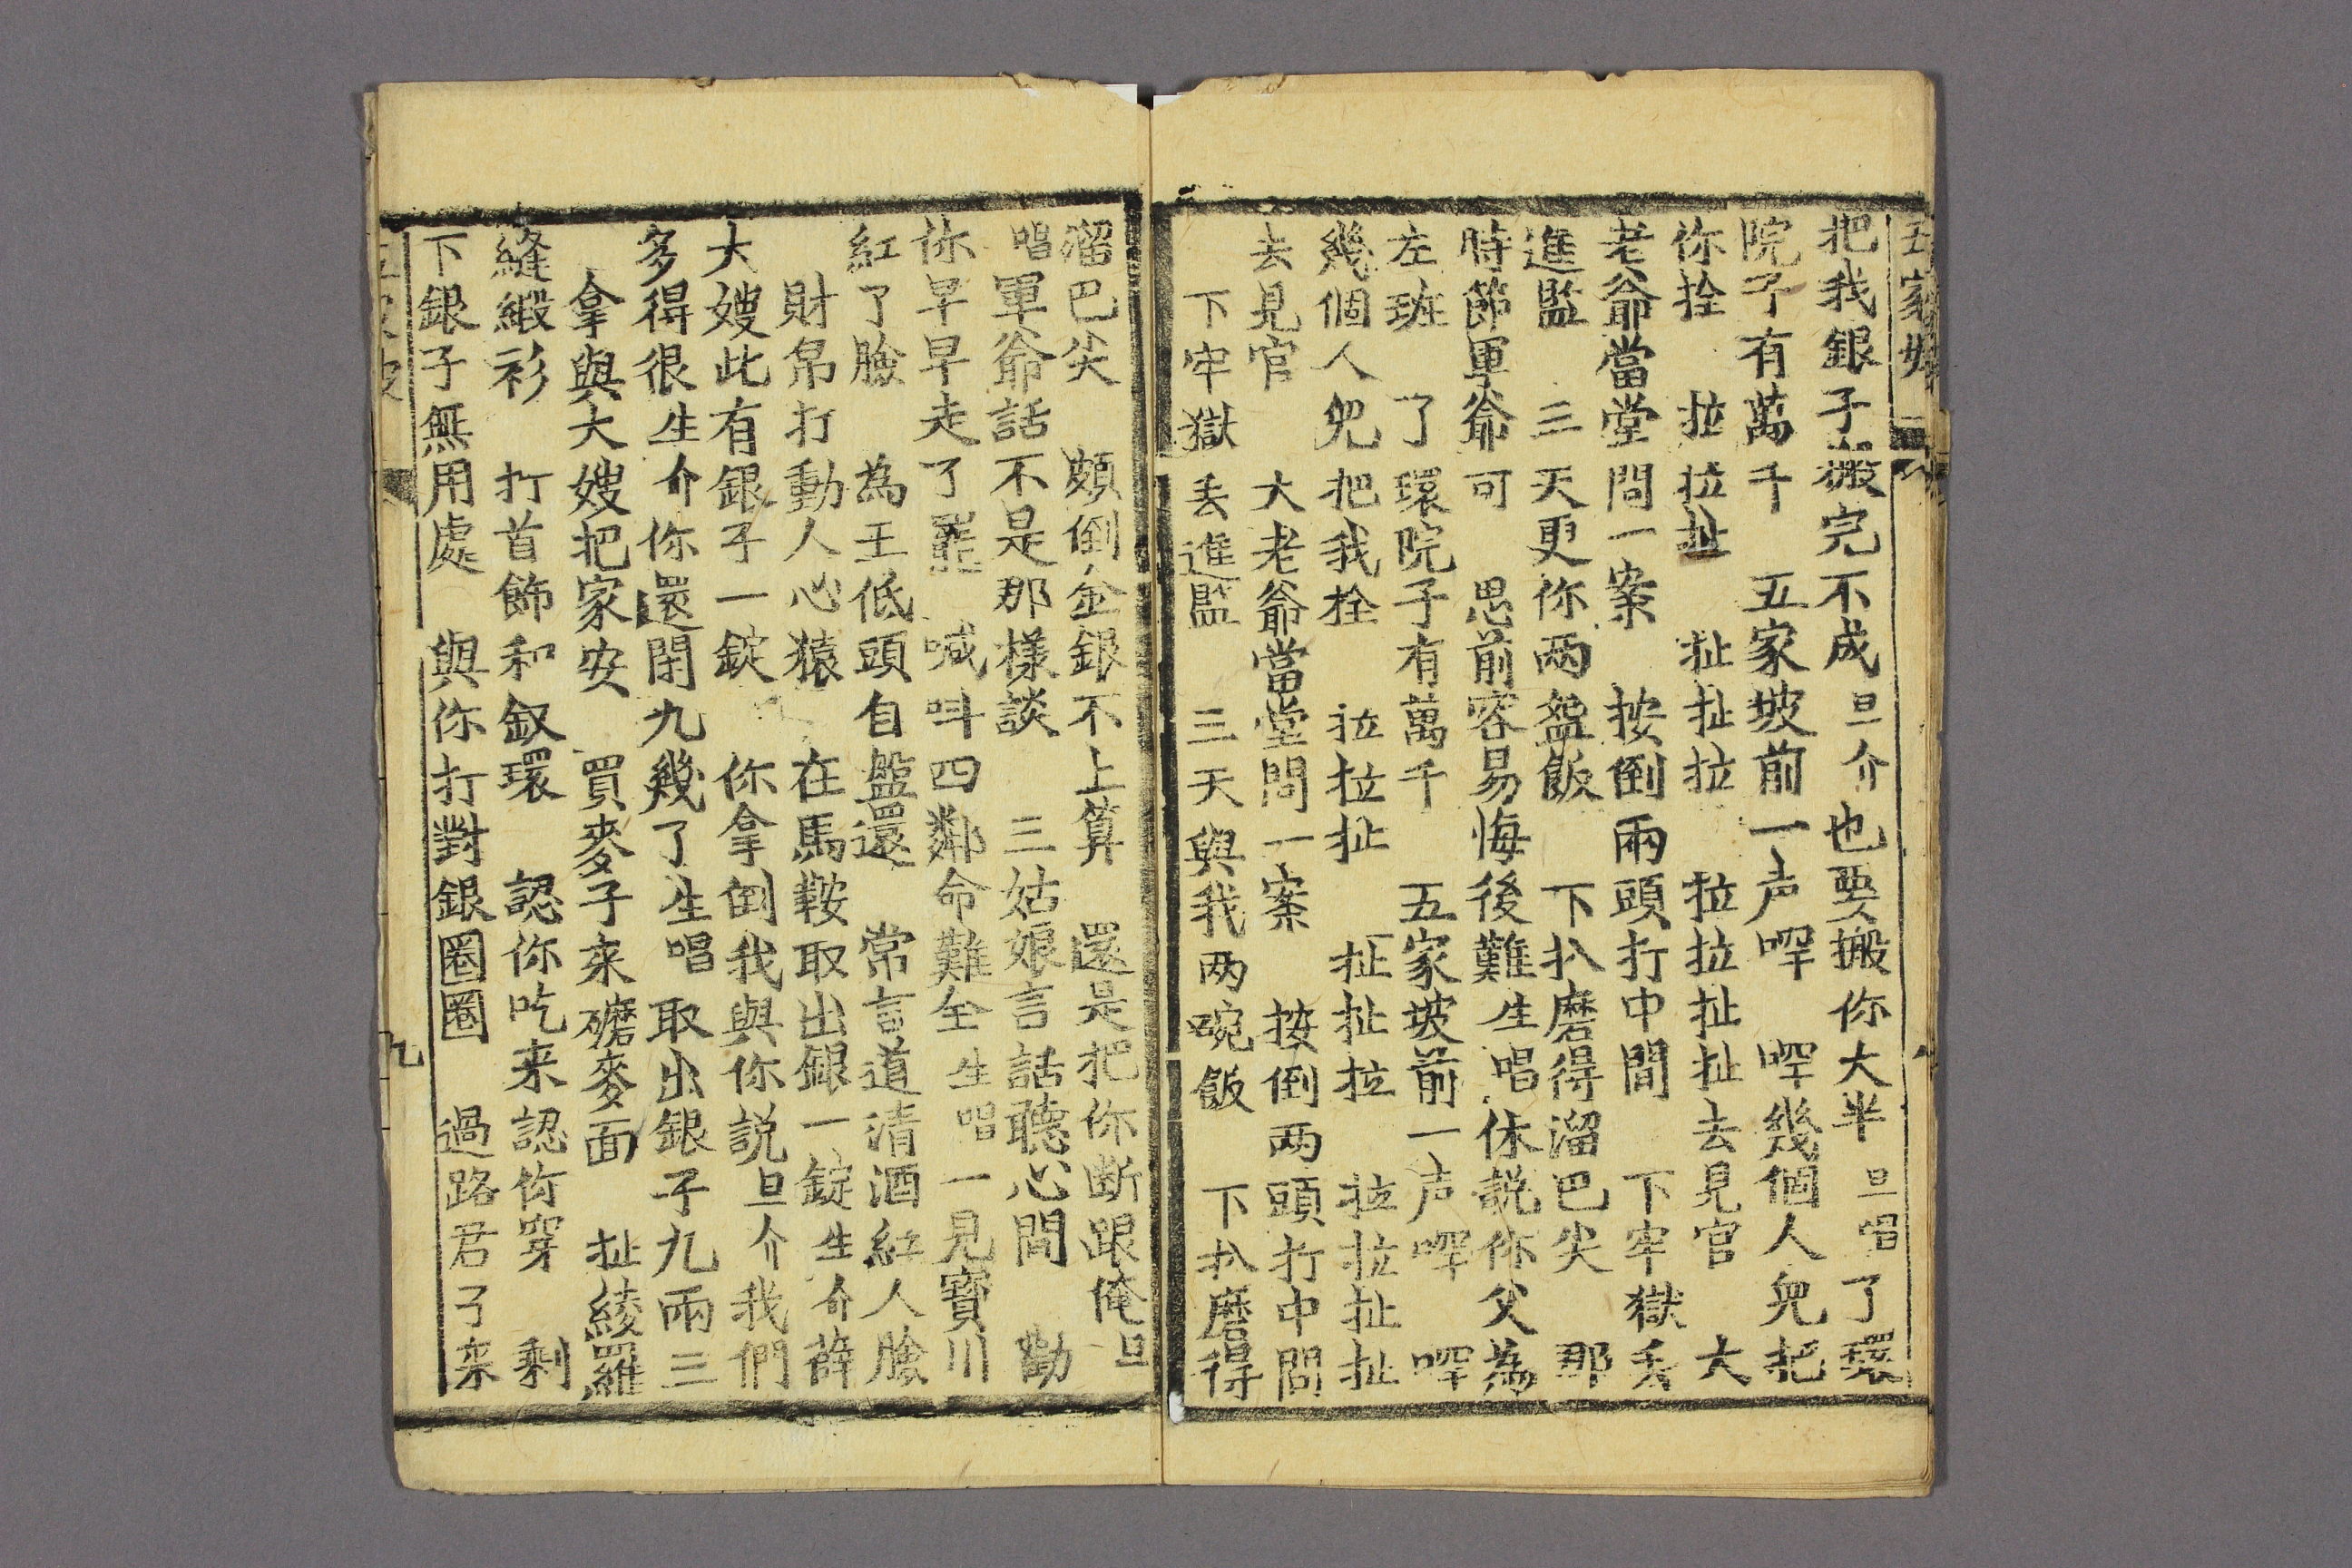 五家坡
把我銀子搬完不成旦介也要搬你大半旦唱了環
院子有萬千 五家坡前一声㖃 㖃幾個人兒把
你拴 拉拉扯 扯扯拉 拉拉扯扯去見官 大
老爺當堂問一案 按倒兩頭打中間 下牢獄丢
進監 三天更你两盌飯 下扒磨得溜巴尖 那
時節軍爺可 思前容易悔後難生唱休説你父為
左班 了環院子有萬千 五家坡前一声㖃 㖃
幾個人兒把我拴 拉拉扯 扯扯拉 拉拉扯扯
去見官 大老爺當堂問一案 按倒两頭打中間
下牢獄丢進監 三天與我两碗飯 下扒磨得
溜巴尖 頗倒金銀不上算 還是把你断跟俺旦
唱軍爺話不是那樣談 三姑娘言話聽心間 勸
你早早走了罷 喊呌四鄰命難全生唱一見寳川
紅了臉 為王低頭自盤還 常言道清酒紅人臉
財帛打動人心猿 在馬鞍取出銀一錠生介薛
大嫂此有銀子一錠 你拿倒我與你説旦介我們
多得很生介你還閙九幾了生唱取出銀子九兩三
拿與大嫂把家安 買麥子來磨麥面 扯綾羅
縫緞衫 打首飾和釵環 認你吃来認你穿 剩
下銀子無用處 與你打對銀圈圈 過路君子来
九